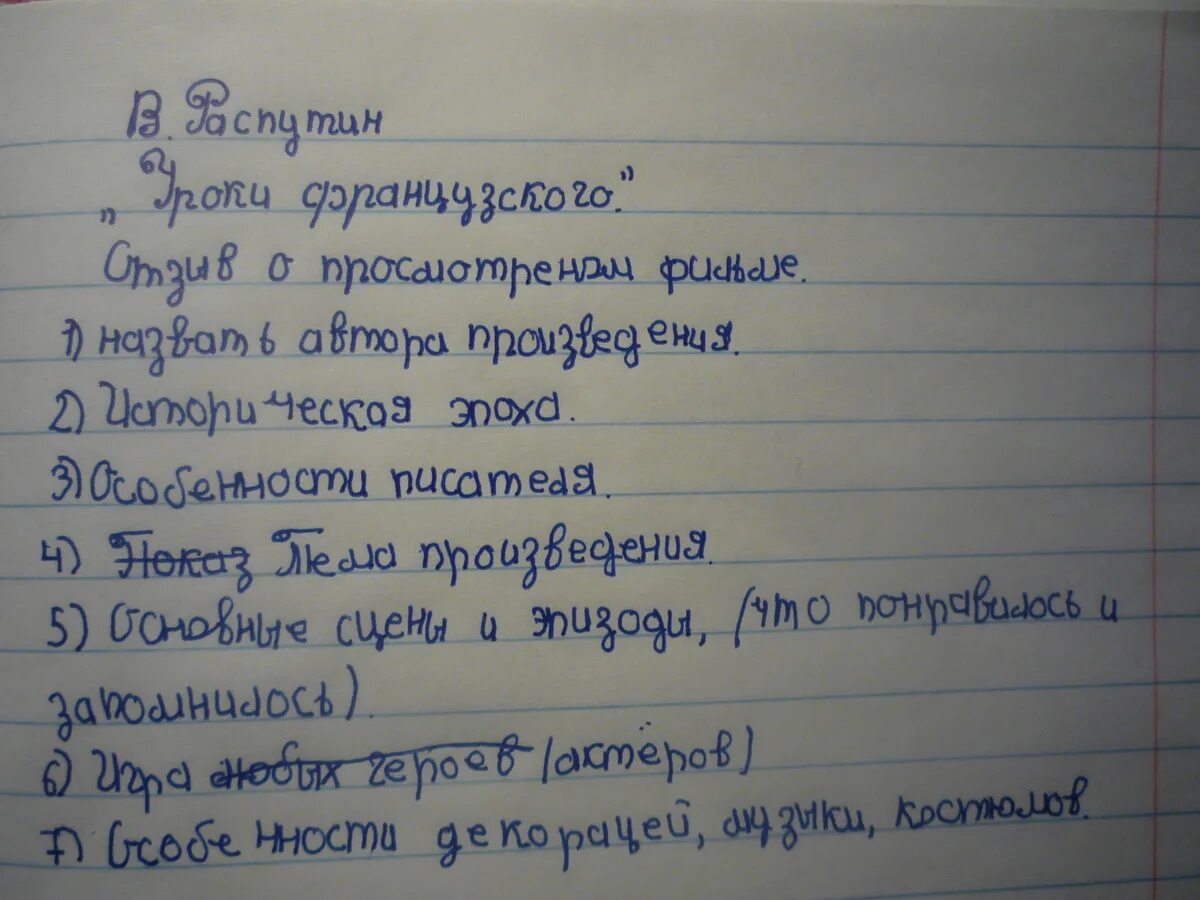 В. Распутин
„Уроки французского."
Отзыв о просмотреном фильме.
1) назвать автора произведения.
2) Историческая эпоха.
3) Особенности писателя.
4) Показ Тема произведения.
5) Основные сцены и эпизоды, (что понравилось и
запомнилось).
6) Игра героев (актёров)
7) Особенности декораций, музыки, костюмов.